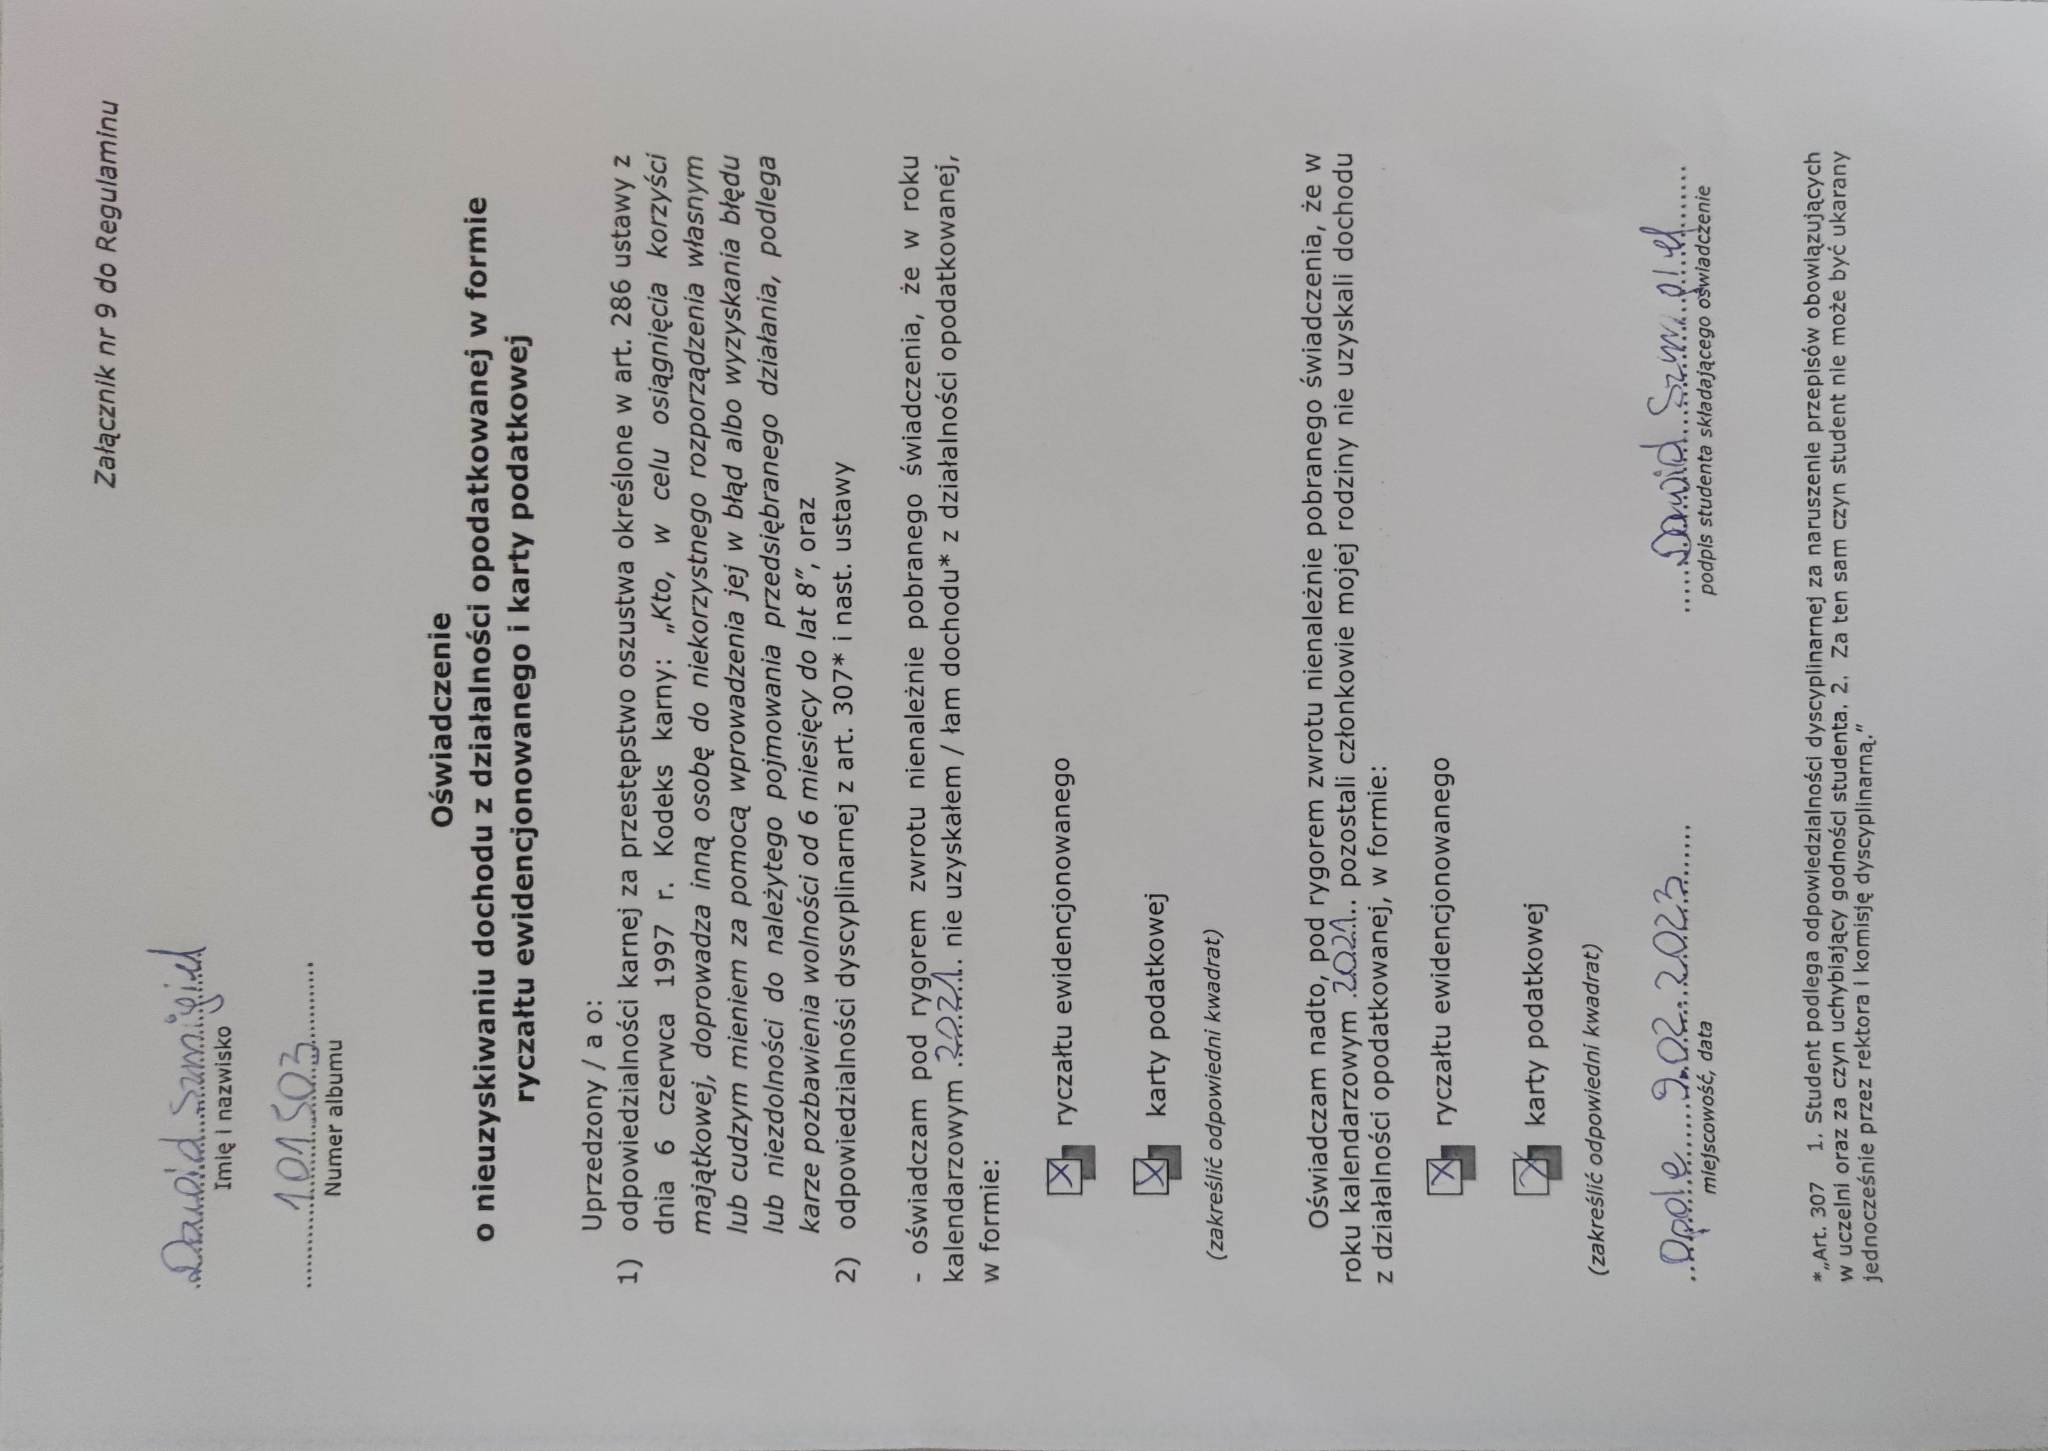 Załącznik nr 9 do Regulaminu
Dawid Szmigiel
Imię i nazwisko
101503
Numer albumu
Oświadczenie
o nieuzyskiwaniu dochodu z działalności opodatkowanej w formie
ryczałtu ewidencjonowanego i karty podatkowej
Uprzedzony / a o:
1) odpowiedzialności karnej za przestępstwo oszustwa określone w art. 286 ustawy z
dnia 6 czerwca 1997 r. Kodeks karny: „Kto, w celu osiągnięcia korzyści
majątkowej, doprowadza inną osobę do niekorzystnego rozporządzenia własnym
lub cudzym mieniem za pomocą wprowadzenia jej w błąd albo wyzyskania błędu
lub niezdolności do należytego pojmowania przedsiębranego działania, podlega
karze pozbawienia wolności od 6 miesięcy do lat 8”, oraz
2) odpowiedzialności dyscyplinarnej z art. 307* i nast. ustawy
- oświadczam pod rygorem zwrotu nienależnie pobranego świadczenia, że w roku
kalendarzowym 2021 nie uzyskałem / łam dochodu* z działalności opodatkowanej,
w formie:
ryczałtu ewidencjonowanego
karty podatkowej
(zakreślić odpowiedni kwadrat)
Oświadczam nadto, pod rygorem zwrotu nienależnie pobranego świadczenia, że w
roku kalendarzowym 2021 pozostali członkowie mojej rodziny nie uzyskali dochodu
z działalności opodatkowanej, w formie:
ryczałtu ewidencjonowanego
karty podatkowej
(zakreślić odpowiedni kwadrat)
Opole 9.02.2023 Dawid Szmigiel
miejscowość, data podpis studenta składającego oświadczenie
*„Art. 307 1. Student podlega odpowiedzialności dyscyplinarnej za naruszenie przepisów obowiązujących
w uczelni oraz za czyn uchybiający godności studenta. 2. Za ten sam czyn student nie może być ukarany
jednocześnie przez rektora i komisję dyscyplinarną.”